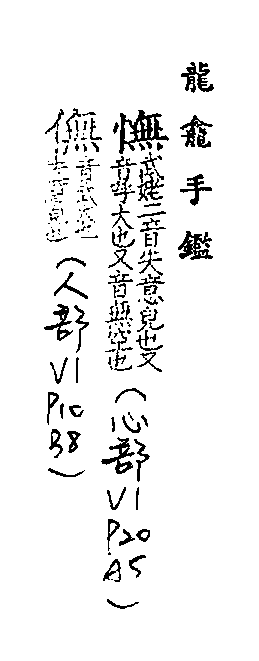 龍龕手鑑
憮武姥二音失意皃也又
音呼大也又音無空也
(心部V1P20A5)
㒇音武
(人部V1P10B8)